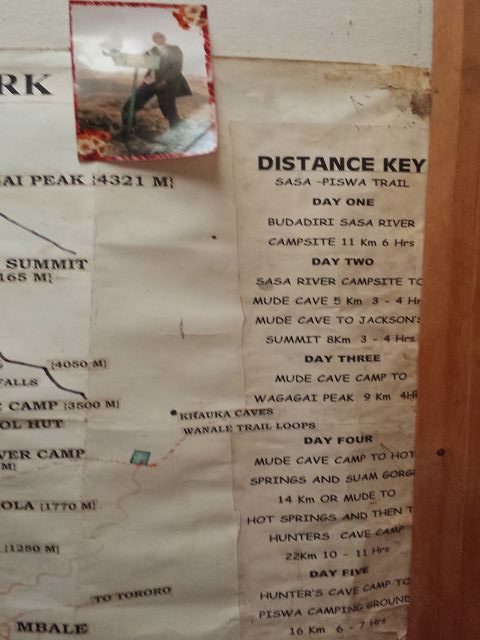 RK
AI PEAK {4321 M}
SUMMIT
165 M}
{4050 M}
FALLS
CAMP {3500 M}
OL HUT
VER CAMP
M}
OLA {1770 M}
{1250 M}
MBALE
KHAUKA CAVES
WANALE TRAIL LOOPS
TO TORORO
DISTANCE KEY
SASA -PISWA TRAIL
DAY ONE
BUDADIRI SASA RIVER
CAMPSITE 11 Km 6 Hrs
DAY TWO
SASA RIVER CAMPSITE TO
MUDE CAVE 5 Km 3 - 4 Hr
MUDE CAVE TO JACKSON'S
SUMMIT 8Km 3 - 4 Hrs
DAY THREE
MUDE CAVE CAMP TO
WAGAGAI PEAK 9 Km 4H
DAY FOUR
MUDE CAVE CAMP TO HOT
SPRINGS AND SUAM GORG
14 Km OR MUDE TO
HOT SPRINGS AND THEN T
HUNTERS CAVE CAMP
22Km 10 - 11 Hrs
DAY FIVE
HUNTER'S CAVE CAMP TO
PISWA CAMPING GROUND
16 Km 6 - 7 Hrs